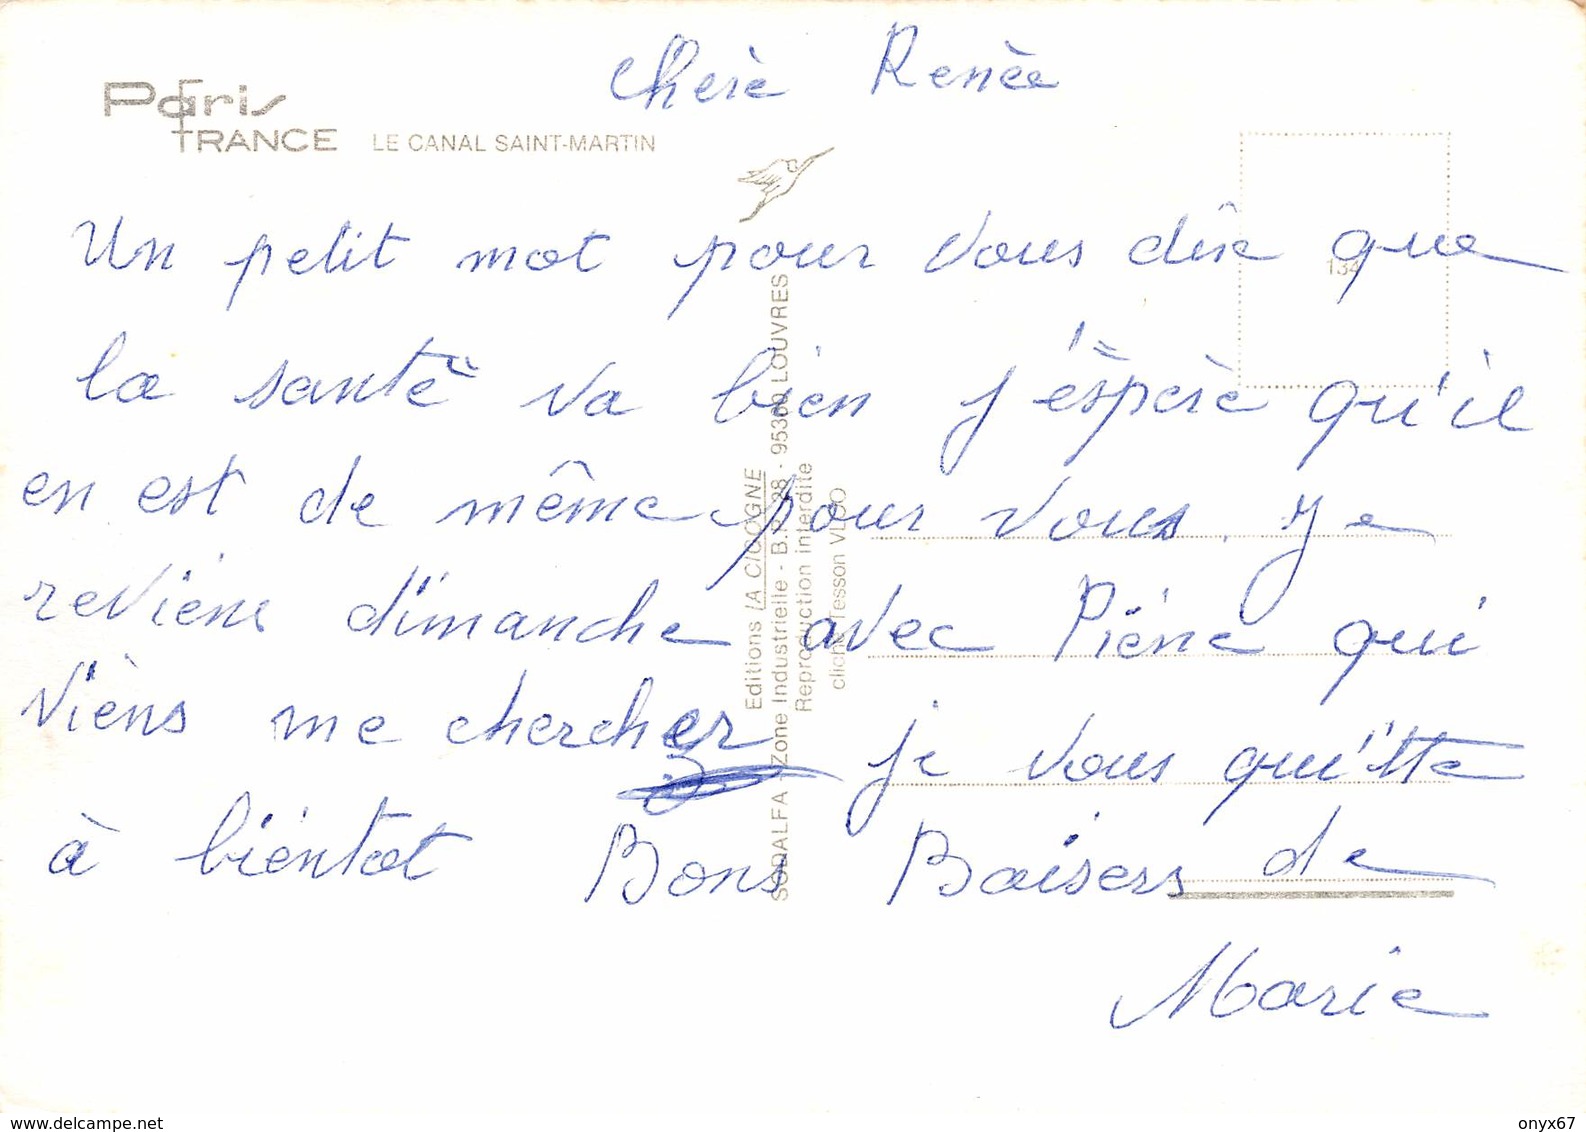 Cherè Renèe
Paris
FRANCE LE CANAL SAINT-MARTIN
Un petit mot pour vous dîre que
134
la santè va bien j'éspèrè qu'il
en est de même pour vous. Je
reviens dimanche avec Pièrre qui
viens me chercher je vous qui'tte
à bientot Bons Baisers de
Marie
Editions LA CIGOGNE
SODALFA - Zone Industrielle - B.P. 28 - 95380 LOUVRES
Reproduction interdite
cliché Tesson VLOO
www.delcampe.net
onyx67